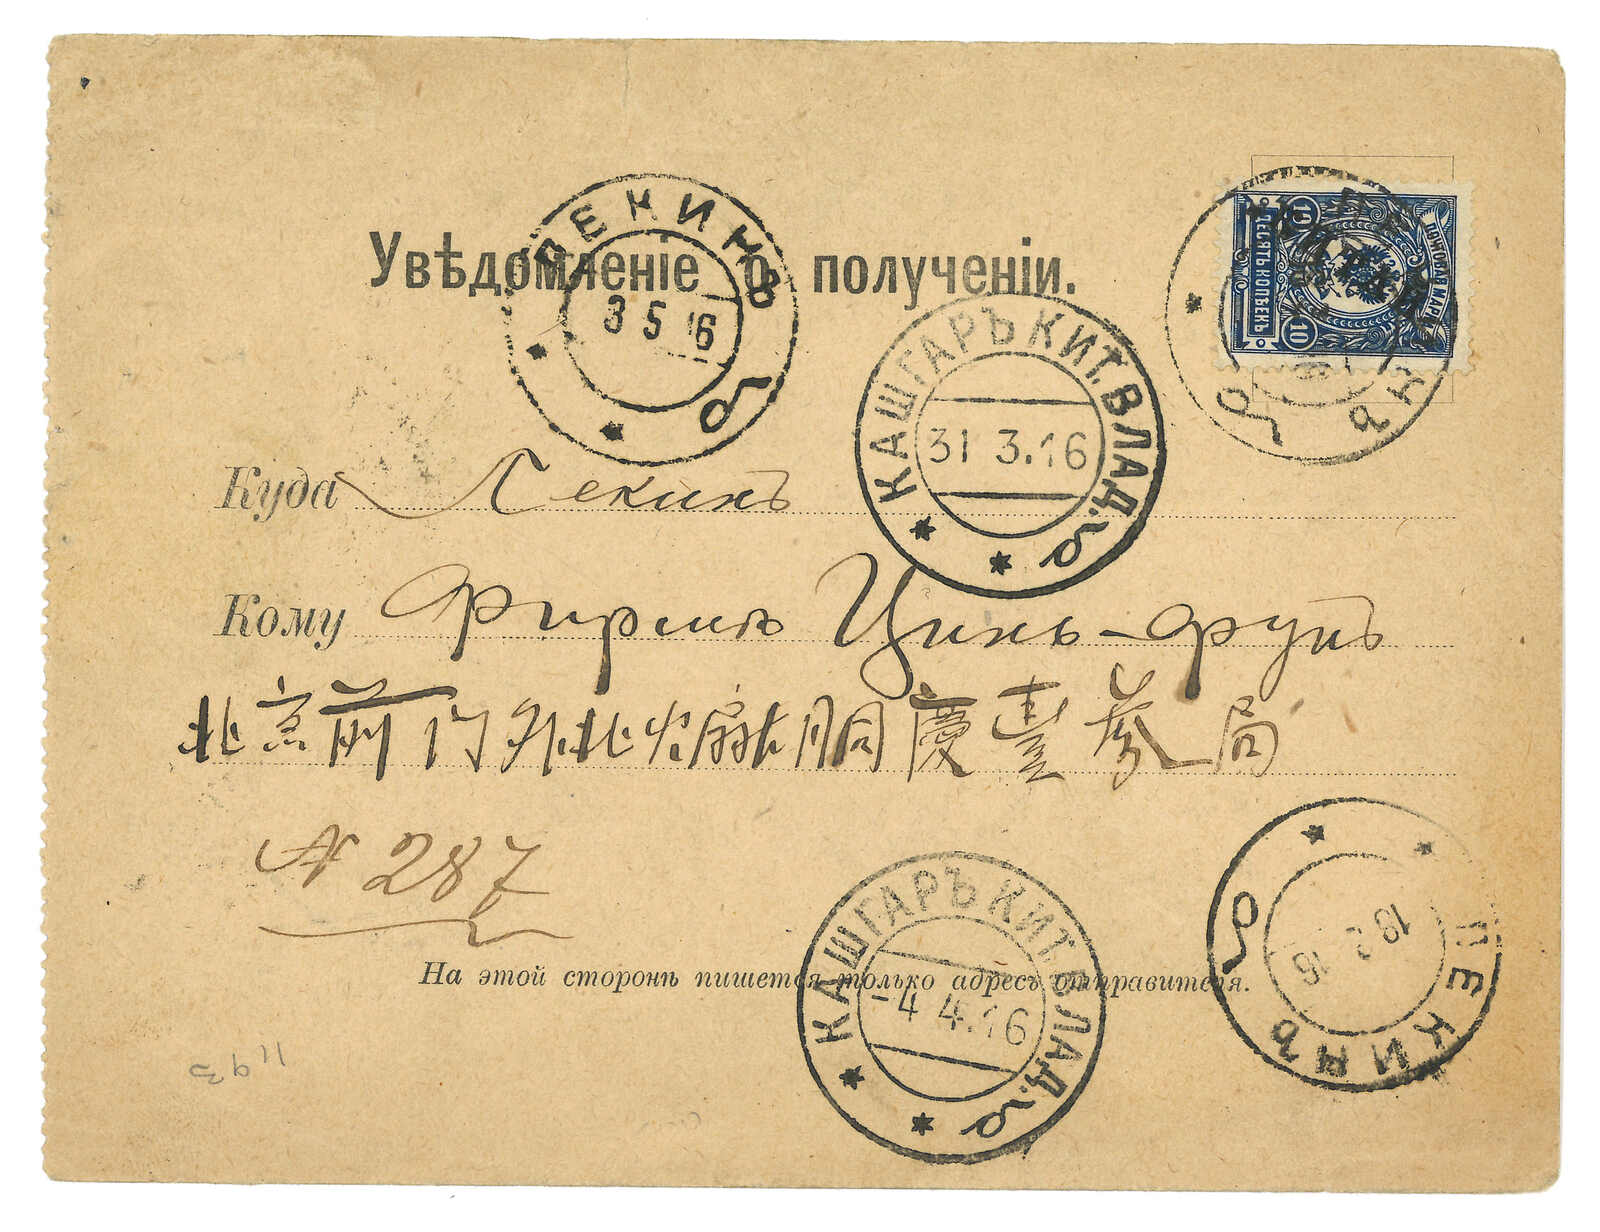 ПЕКИНЪ
3 5 16
ПОЧТОВАЯ МАРКА
ДЕСЯТЬ КОПѢЕКЪ
10
10
КИТАЙ
ПЕКИНЪ
Увѣдомленіе о полученіи.
КАШГАРЪ КИТ. ВЛАД.
31 3.16
Куда Пекинъ
Кому Фирмѣ Цинь-Фунъ
北京前门外北火扇胡同慶臺票局
N 287
КАШГАРЪ КИТ. ВЛАД.
-4 4.16
ПЕКИНЪ
На этой сторонѣ пишется только адресъ отправителя.
1193